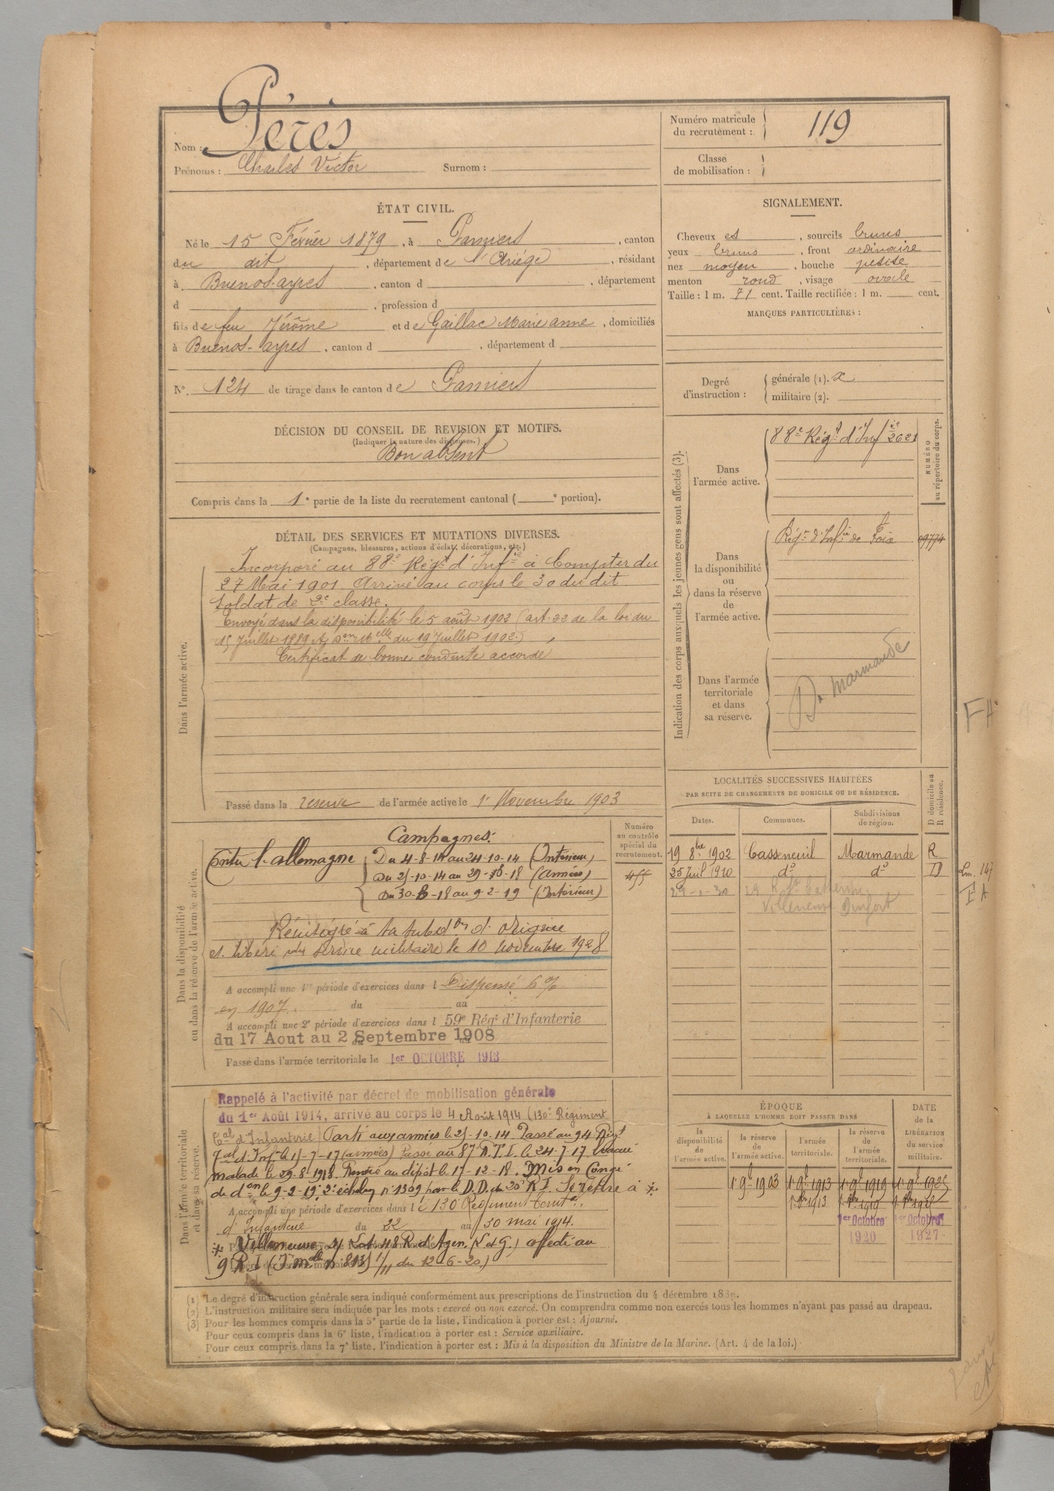 Nom : Pérès
Prénoms : Charles Victor Surnom :
Numéro matricule du recrutement : 119
Classe de mobilisation :
ÉTAT CIVIL.
Né le 15 Février 1879, à Pamiers, canton
du dit, département de l'Ariège, résidant
à Buenos-ayres, canton d , département
d , profession d
fils de feu Jérôme et de Gaillac Marie anne, domiciliés
à Buenos-ayres, canton d , département d
N°. 124 de tirage dans le canton de Pamiers
SIGNALEMENT.
Cheveux et , sourcils bruns
yeux bruns , front ordinaire
nez moyen , bouche petite
menton rond , visage ovale
Taille : 1 m. 71 cent. Taille rectifiée : 1 m. cent.
MARQUES PARTICULIÈRES :
Degré d'instruction : générale (1). 2
militaire (2).
DÉCISION DU CONSEIL DE REVISION ET MOTIFS.
(Indiquer la nature des dispenses.)
Bon absent
Compris dans la 1e partie de la liste du recrutement cantonal ( e portion).
DÉTAIL DES SERVICES ET MUTATIONS DIVERSES.
(Campagnes, blessures, actions d'éclat, décorations, etc.)
Dans l'armée active.
Incorporé au 88e Régt d'Infie à Compter du
27 Mai 1901 Arrivé au corps le 30 du dit
Soldat de 2e classe.
Envoyé dans la disponibilité le 5 août 1902 (art. 22 de la loi du
15 Juillet 1889 du 19 Juillet 1902)
Certificat de bonne conduite accordé
Passé dans la réserve de l'armée active le 1r Novembre 1903
Indication des corps auxquels les jeunes gens sont affectés (3).
NUMÉRO au répertoire du corps.
Dans l'armée active.
88e Régt d'Infie 2021
Dans la disponibilité ou dans la réserve de l'armée active.
Régt d'Infie de Foix
Dans l'armée territoriale et dans sa réserve.
Dn Marmande
LOCALITÉS SUCCESSIVES HABITÉES
PAR SUITE DE CHANGEMENTS DE DOMICILE OU DE RÉSIDENCE.
Dates. Communes. Subdivisions de région. D domicile ou R résidence.
19 8bre 1902 Casseneuil Marmande R
25 juil 1910 do do D
Villeneuve
Dans la disponibilité ou dans la réserve de l'armée active.
Numéro au contrôle spécial du recrutement.
455
Campagnes :
Contre l'allemagne Du 4-8-14 au 24-10-14 (Intérieur)
Du 25-10-14 au 29-8-18 (armées)
Du 30-8-18 au 9-2-19 (Intérieur)
Réintégré à la subdon d'origine
et libéré du service militaire le 10 novembre 1928
A accompli une 1re période d'exercices dans l Dispensé
en 1907. du au
A accompli une 2e période d'exercices dans l 59e Régt d'Infanterie
du 17 Aout au 2 Septembre 1908
Passé dans l'armée territoriale le 1er OCTOBRE 1913
Dans l'armée territoriale et dans sa réserve.
Rappelé à l'activité par décret de mobilisation générale
du 1er Août 1914, arrivé au corps le 4 Août 1914 (130e Régiment
Tal d'Infanterie) Parti aux armées le 25-10-14. Passé au 94 Régt
Tal d'Infie le 15-7-17 (armées) Passé au 87e R.T.I. le 24-7-17 Evacué
malade le 29-8-1918. Rentré au dépôt le 17-12-18. Mis en Congé
de don le 9-2-19 2e échelon n° 1309 par le D.D. du 20e R.I. Se retire à
A accompli une période d'exercices dans l e 130 Régiment Territal
d'Infanterie du 22 au 30 mai 1914.
Villeneuve s/ Lot 48 R. d'Agen (L et G.) affecté au
9 R.I. du 12-6-20)
ÉPOQUE
À LAQUELLE L'HOMME DOIT PASSER DANS
DATE DE LA LIBÉRATION du service militaire.
la disponibilité de l'armée active. la réserve de l'armée active. l'armée territoriale. la réserve de l'armée territoriale.
1r 9bre 1903 1r 9bre 1913 1r 9bre 1919 1r 9bre 1925
1er Octobre 1920 1er Octobre 1927
(1) Le degré d'instruction générale sera indiqué conformément aux prescriptions de l'instruction du 4 décembre 1889.
(2) L'instruction militaire sera indiquée par les mots : exercé ou non exercé. On comprendra comme non exercés tous les hommes n'ayant pas passé au drapeau.
(3) Pour les hommes compris dans la 5e partie de la liste, l'indication à porter est : Ajourné.
Pour ceux compris dans la 6e liste, l'indication à porter est : Service auxiliaire.
Pour ceux compris dans la 7e liste, l'indication à porter est : Mis à la disposition du Ministre de la Marine. (Art. 4 de la loi.)